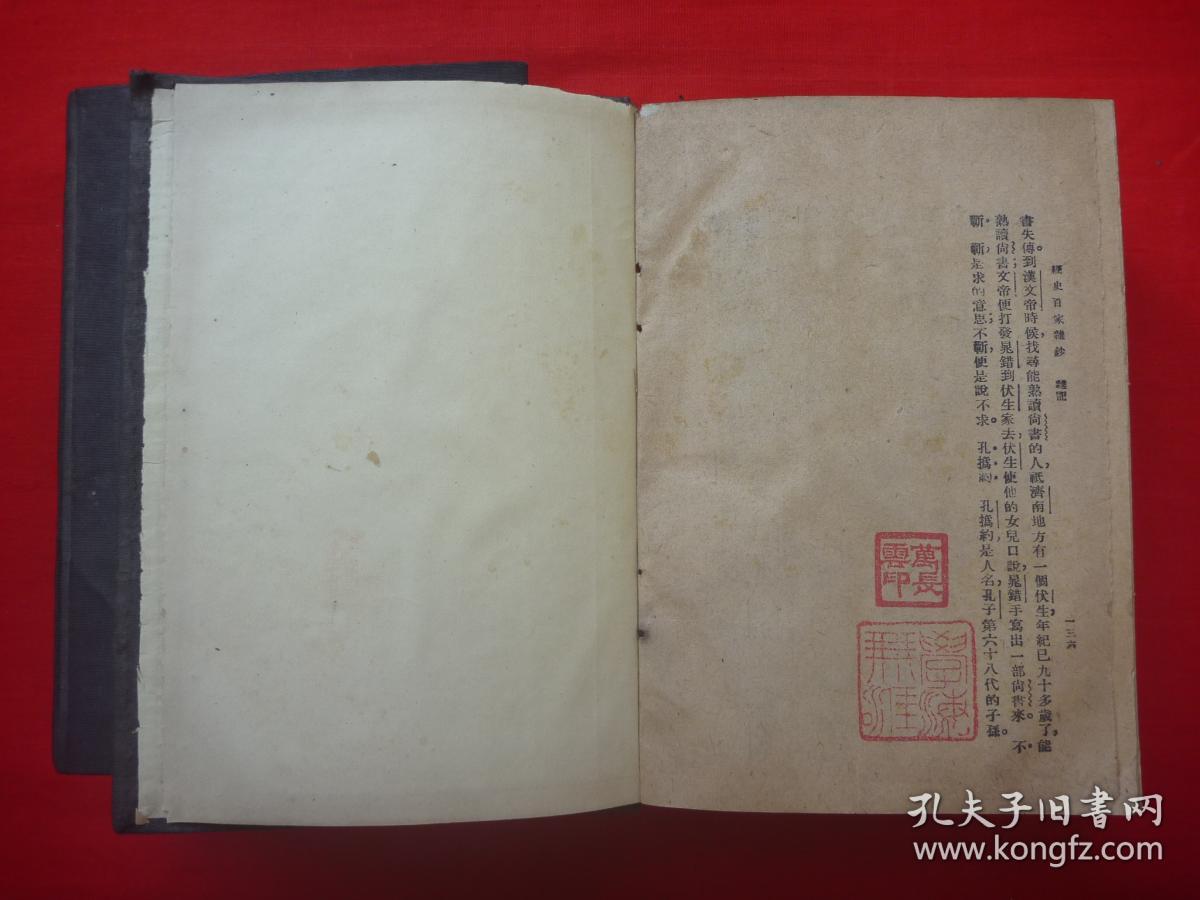 經史百家雜鈔 雜記
一三六
書失傳。到漢文帝時候，找尋能熟讀尙書的人，祇濟南地方有一個伏生，年紀已九十多歲了，能
熟讀尙書；文帝便打發晁錯到伏生家去，伏生使他的女兒口說，晁錯手寫出一部尙書來。 不
蘄 蘄，是求的意思；不蘄，便是說不求。 孔撝約 孔撝約，是人名，孔子第六十八代的子孫。
萬長
雲印
學海
無涯
孔夫子旧書网
www.kongfz.com